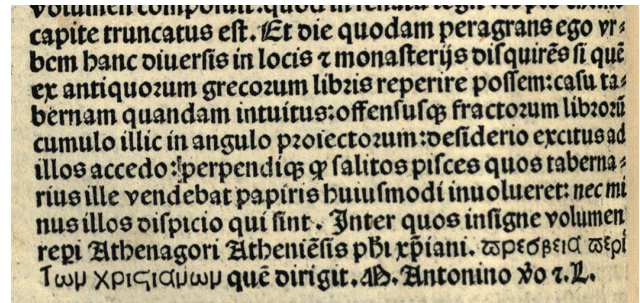 volumen composuit: quod in
capite truncatus est. Et die quodam peragrans ego vr⸗
bem hanc diuersis in locis ⁊ monasterijs disquirẽs si quẽ
ex antiquorum grecorum libris reperire possem: casu ta⸗
bernam quandam intuitus: offensusqꝫ fractorum librorũ
cumulo illic in angulo proiectorum: desiderio excitus ad
illos accedo: perpendiqꝫ ꝙ salitos pisces quos taberna⸗
rius ille vendebat papiris huiusmodi inuolueret: nec mi
nus illos dispicio qui sint. Inter quos insigne volumen
reperi Athenagori Atheniẽsis pħi xp̃iani. ϖρεσβεια ϖερὶ
Τωμ χριϛιαμωμ quẽ dirigit. M. Antonino v̊o ⁊. L.